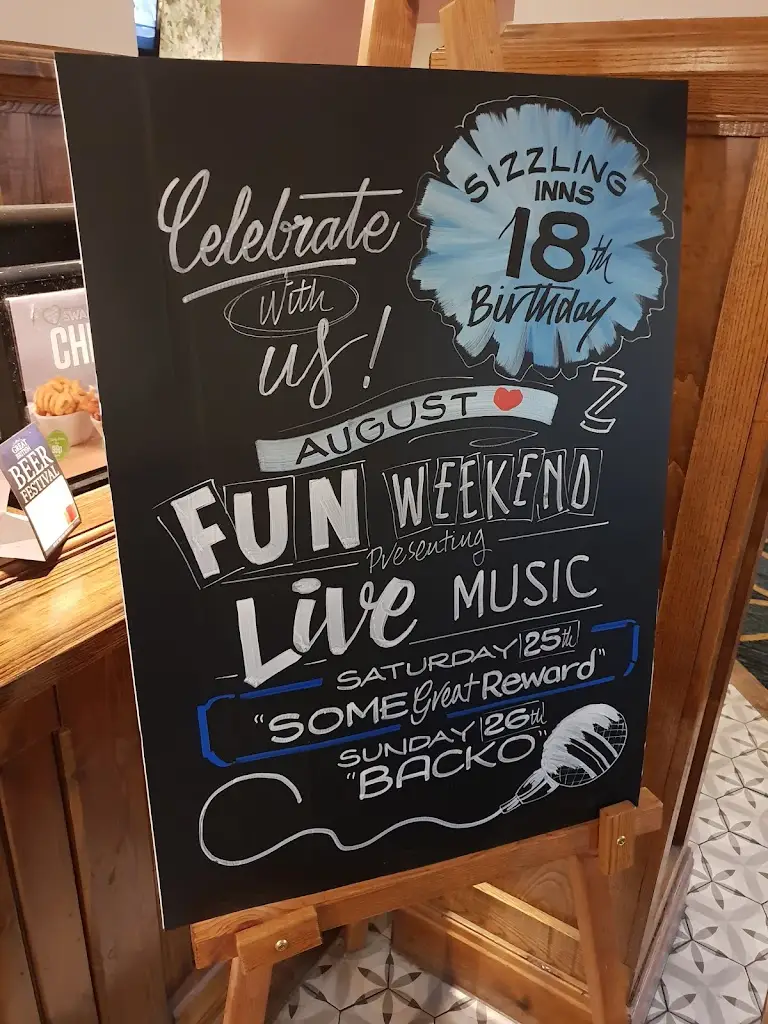 SIZZLING
INNS
18th
Birthday
Celebrate
With
us!
AUGUST
FUN WEEKEND
Presenting
Live MUSIC
SATURDAY 25th
"SOME Great Reward"
SUNDAY 26th
"BACKO"
SWA
CH
GREAT
BEER
FESTIVAL